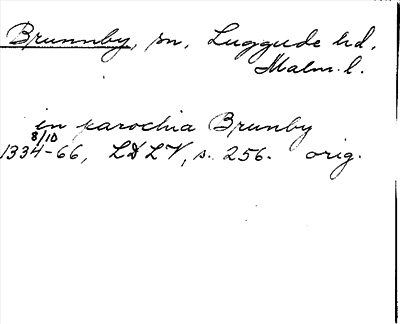 Brunnby, sn, Luggude hd,
Malm. l.
in parochia Brunby
8/10
1334-66, LDLV, s. 256. orig.